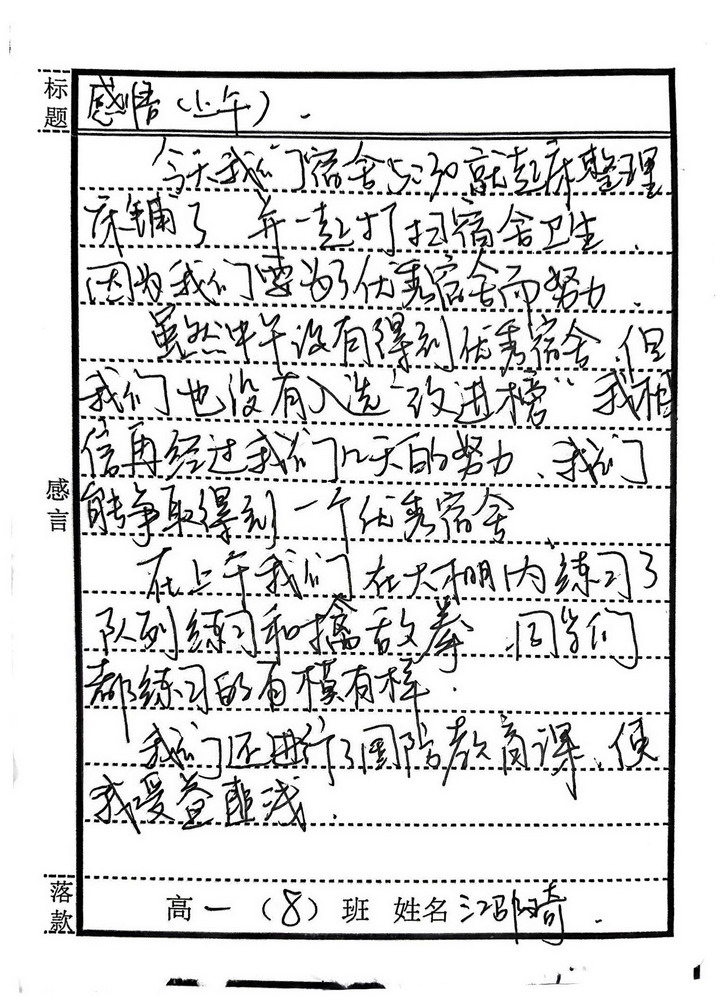 标题
感悟（上午）.
今天我们宿舍5:30就起床整理
床铺了 并一起打扫宿舍卫生.
因为我们要为了优秀宿舍而努力.
虽然中午没有得到优秀宿舍、但
我们也没有入选"改进榜" 我相
信再经过我们几天的努力、我们
能争取得到一个优秀宿舍
感言
在上午我们在大棚内练习了
队列练习和擒敌拳 同学们
都练习的有模有样.
我们还进行了国防教育课、使
我受益匪浅.
落款
高一（8）班 姓名